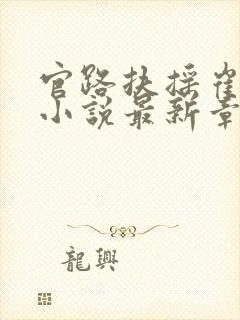 官路扶摇崔
小説最新章
龍興